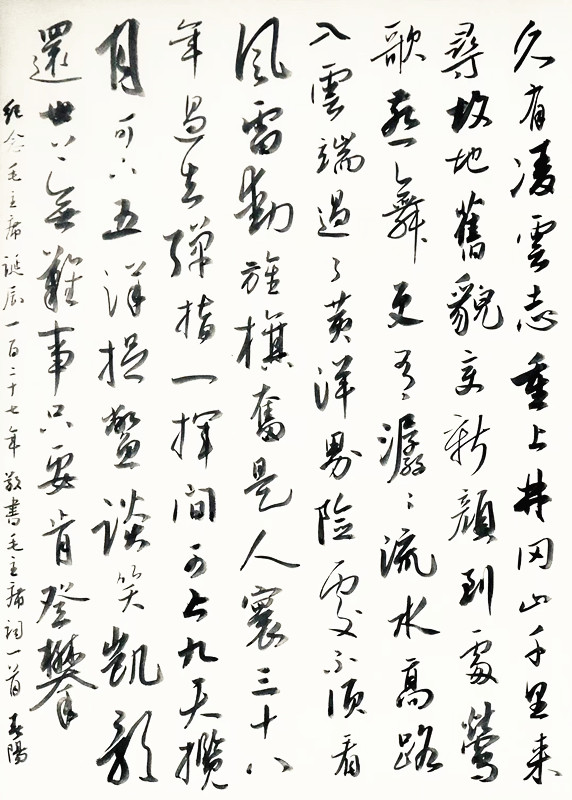 久有凌雲志重上井冈山千里来
尋故地舊貌变新顔到處鶯
歌燕舞更有潺潺流水高路
入雲端過了黄洋界险處不须看
風雷動旌旗奮是人寰三十八
年過去彈指一揮间可上九天攬
月可下五洋捉鳖谈笑凱歌
還世上無難事只要肯登攀
纪念毛主席诞辰一百二十七年敬書毛主席词一首 陽